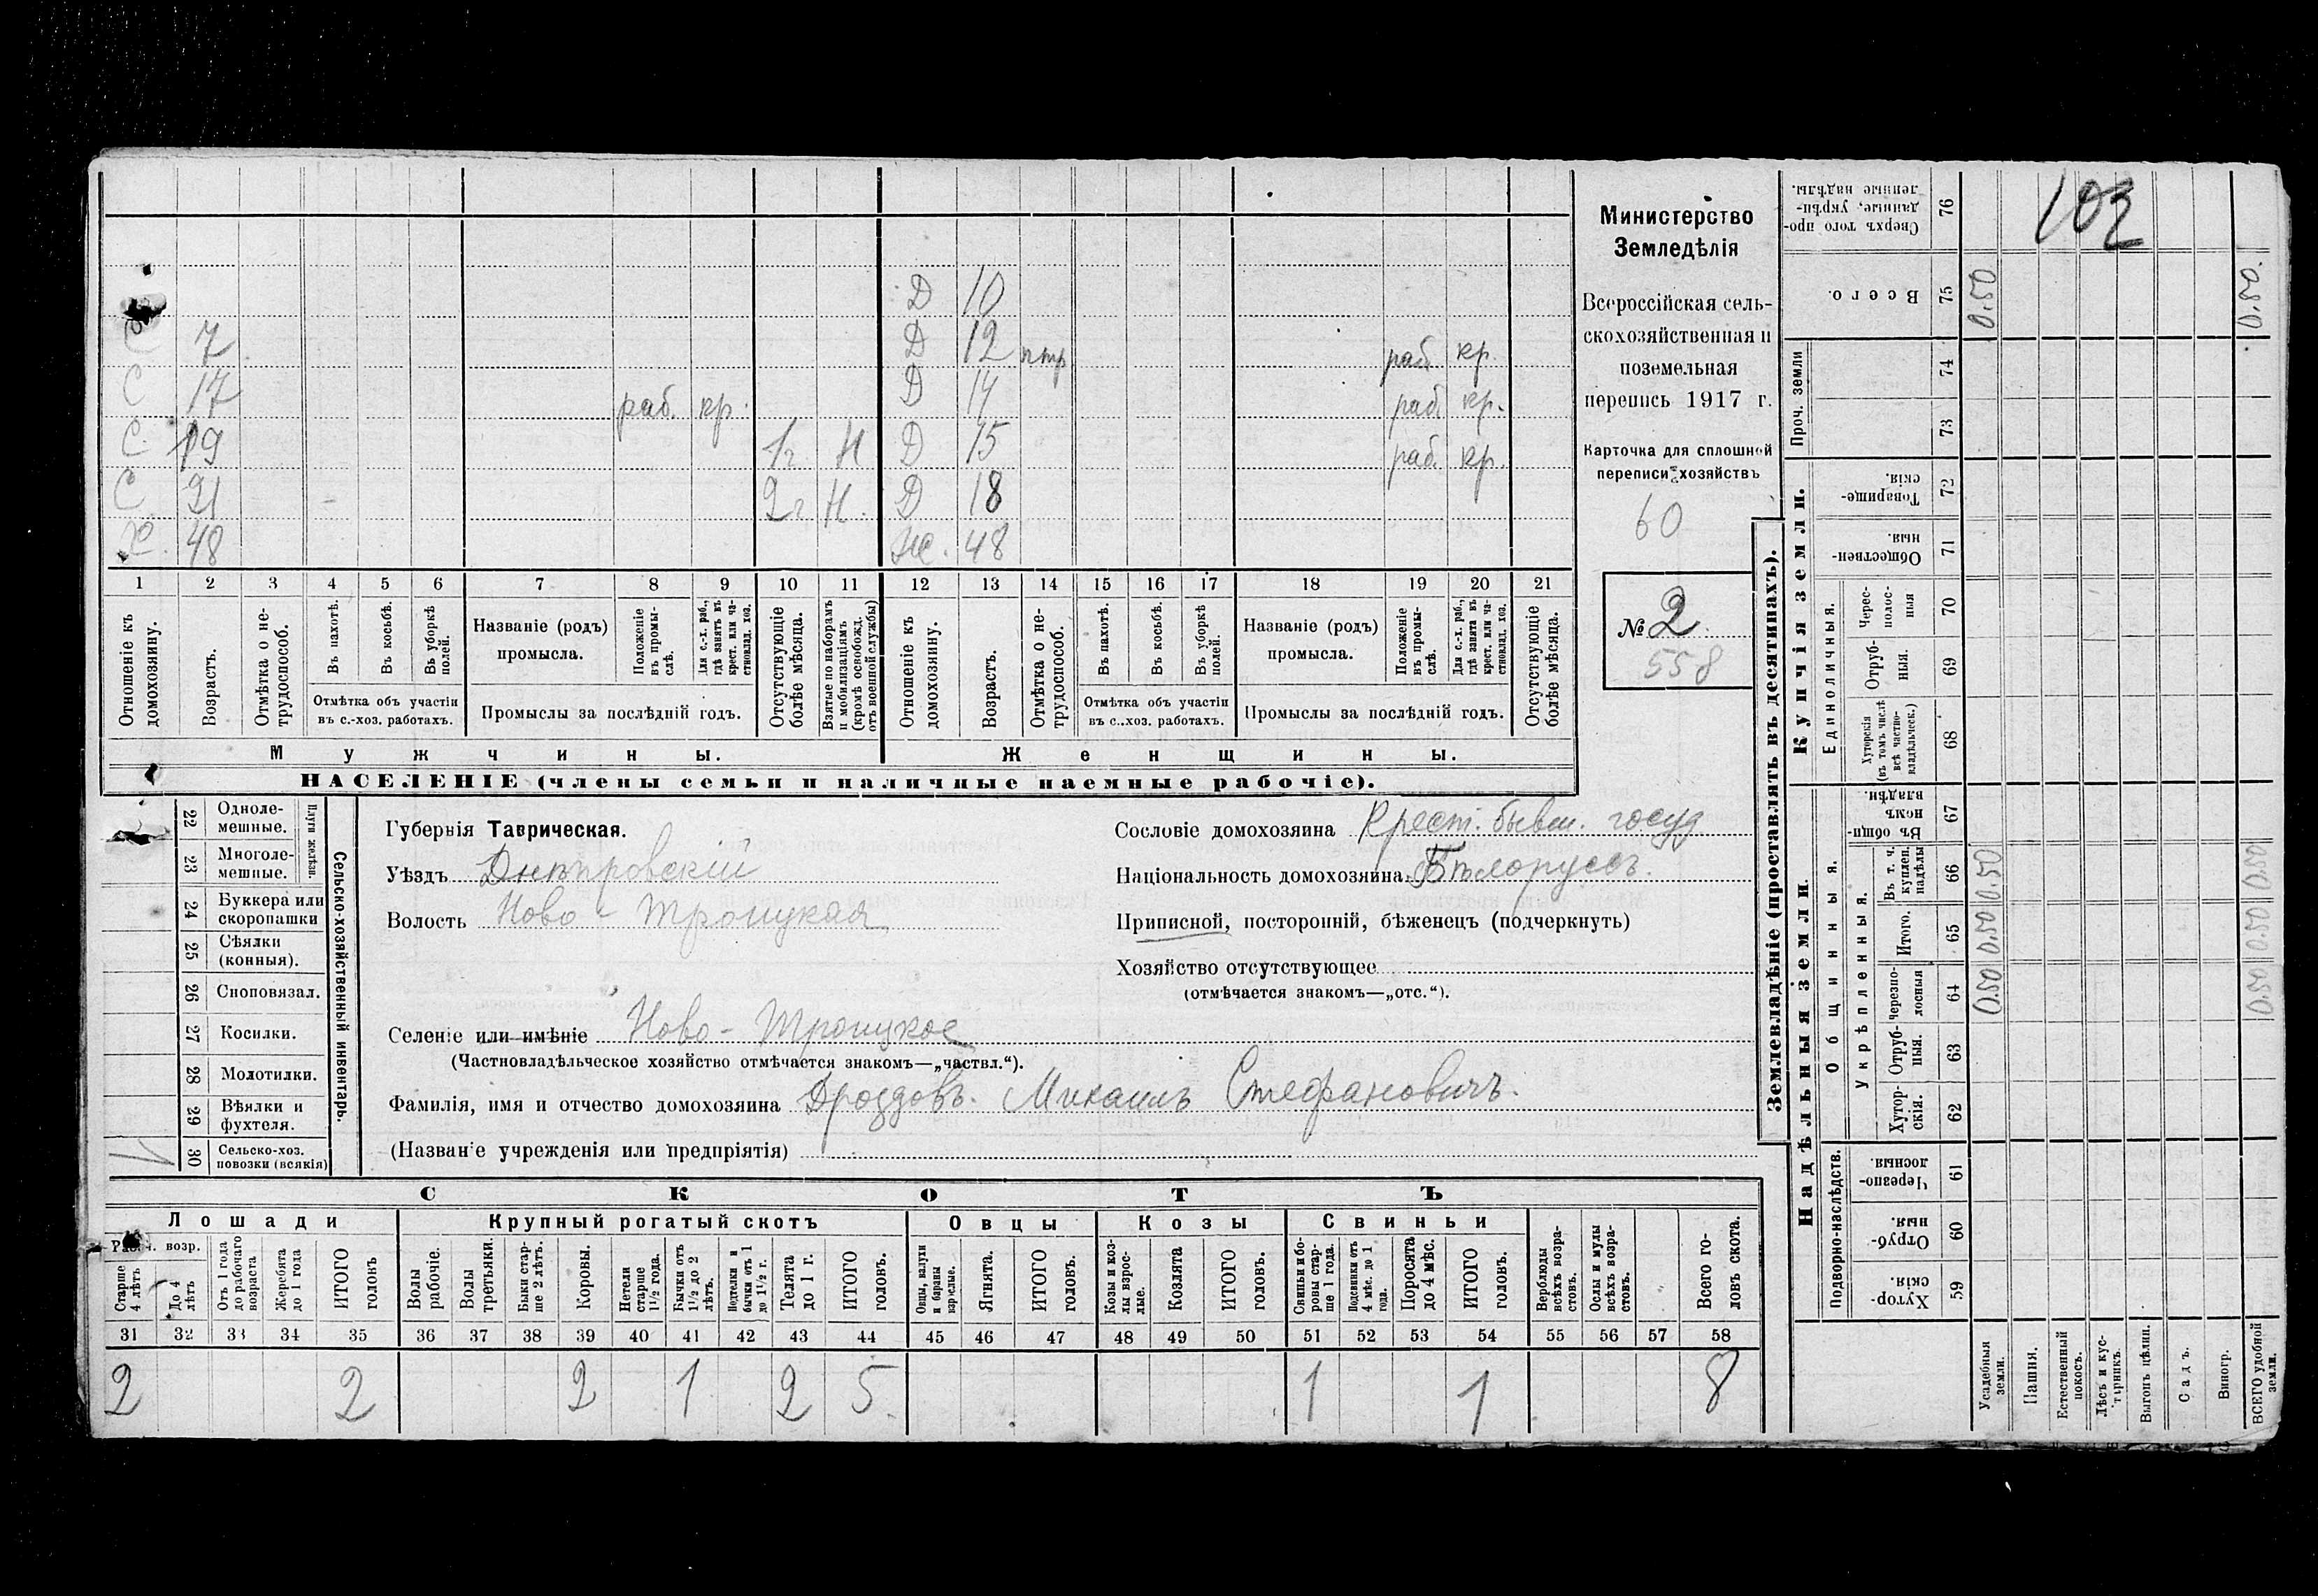 Д 10
С 7 Д 12 нтр раб. кр.
С 17 раб. кр. Д 14 раб. кр.
С. 19 1 г. Н Д 15 раб. кр.
С 21 2 г. Н. Д 18
Х. 48 Ж. 48
1 2 3 4 5 6 7 8 9 10 11 12 13 14 15 16 17 18 19 20 21
Отношеніе къ домохозяину.
Возрастъ.
Отмѣтка о нетрудоспособ.
Въ пахотѣ.
Въ косьбѣ.
Въ уборкѣ полей.
Отмѣтка объ участіи
въ с.-хоз. работахъ.
Названіе (родъ)
промысла.
Положеніе въ промыслѣ.
Для с.-х. раб., гдѣ занятъ въ крест. или частновлад. хоз.
Промыслы за послѣдній годъ.
Отсутствующіе болѣе мѣсяца.
Взятые по наборамъ и мобилизаціямъ (кромѣ освобожд. отъ военной службы)
Отношеніе къ домохозяину.
Возрастъ.
Отмѣтка о нетрудоспособ.
Въ пахотѣ.
Въ косьбѣ.
Въ уборкѣ полей.
Отмѣтка объ участіи
въ с.-хоз. работахъ.
Названіе (родъ)
промысла.
Положеніе въ промыслѣ.
Для с.-х. раб., гдѣ занята въ крест. или частновлад. хоз.
Промыслы за послѣдній годъ.
Отсутствующіе болѣе мѣсяца.
Мужчины.
Женщины.
НАСЕЛЕНІЕ (члены семьи и наличные наемные рабочіе).
Министерство
Земледѣлія
Всероссійская сель-
скохозяйственная и
поземельная
перепись 1917 г.
Карточка для сплошной
переписи хозяйствъ
60
№ 2
558
22 Одноле-
мешные.
23 Многоле-
мешные.
Плуги желѣзн.
24 Буккера или
скоропашки
25 Сѣялки
(конныя).
26 Сноповязал.
27 Косилки.
28 Молотилки.
29 Вѣялки и
фухтеля.
30 Сельско-хоз.
повозки (всякія)
1
Сельско-хозяйственный инвентарь.
Губернія Таврическая.
Уѣздъ Днѣпровскій
Волость Ново-Троицкая
Селеніе или имѣніе Ново-Троицкое
(Частновладѣльческое хозяйство отмѣчается знакомъ—„частвл.“).
Фамилія, имя и отчество домохозяина Дроздовъ Михаилъ Стефановичъ.
(Названіе учрежденія или предпріятія)
Сословіе домохозяина Крест. бывш. госуд
Національность домохозяина Бѣлоруссъ.
Приписной, посторонній, бѣженецъ (подчеркнуть)
Хозяйство отсутствующее
(отмѣчается знакомъ—„отс.“).
СКОТЪ
Лошади
Крупный рогатый скотъ
Овцы
Козы
Свиньи
Рабоч. возр.
Старше 4 лѣтъ
До 4 лѣтъ
Отъ 1 года до рабочаго возраста
Жеребята до 1 года
ИТОГО головъ
Волы рабочіе.
Волы третьяки.
Быки старше 2 лѣтъ.
Коровы.
Нетели старше 1½ года.
Бычки отъ 1½ до 2 лѣтъ.
Подтелки и бычки отъ 1 до 1½ г.
Телята до 1 г.
ИТОГО головъ.
Овцы, валухи и бараны взрослые.
Ягнята.
ИТОГО головъ.
Козы и козлы взрослые.
Козлята
ИТОГО головъ.
Свиньи и боровы старше 1 года.
Подсвинки отъ 4 мѣс. до 1 года.
Поросята до 4 мѣс.
ИТОГО головъ.
Верблюды всѣхъ возрастовъ.
Ослы и мулы всѣхъ возрастовъ.
Всего головъ скота.
31 32 33 34 35 36 37 38 39 40 41 42 43 44 45 46 47 48 49 50 51 52 53 54 55 56 57 58
2 2 2 1 2 5 1 1 8
Землевладѣніе (проставлять въ десятинахъ).
Надѣльныя земли.
Купчія земли.
Проч. земли
Подворно-наслѣдств.
Общинныя.
Укрѣпленныя.
Единоличныя.
Хуторскія. 59
Отрубныя. 60
Черезполосныя. 61
Хуторскія. 62
Отрубныя. 63
Черезполосныя 64
Итого. 65
Въ т. ч. куплен. надѣлы 66
Въ общинномъ владѣн. 67
Хуторскія (въ томъ числѣ всѣ частновладѣльческ.) 68
Отрубныя. 69
Чересполосныя 70
Общественныя. 71
Товарищескія. 72
73
74
Всего. 75
Сверхъ того проданные, укрѣпленные надѣлы. 76
Усадебныя земли. 0.50 0.50 0.50 0.50
Пашня.
Естественный покосъ.
Лѣсъ и кустарникъ.
Выгонъ цѣлин.
Садъ.
Виногр.
ВСЕГО удобной земли. 0.50 0.50 0.50 0.50.
103